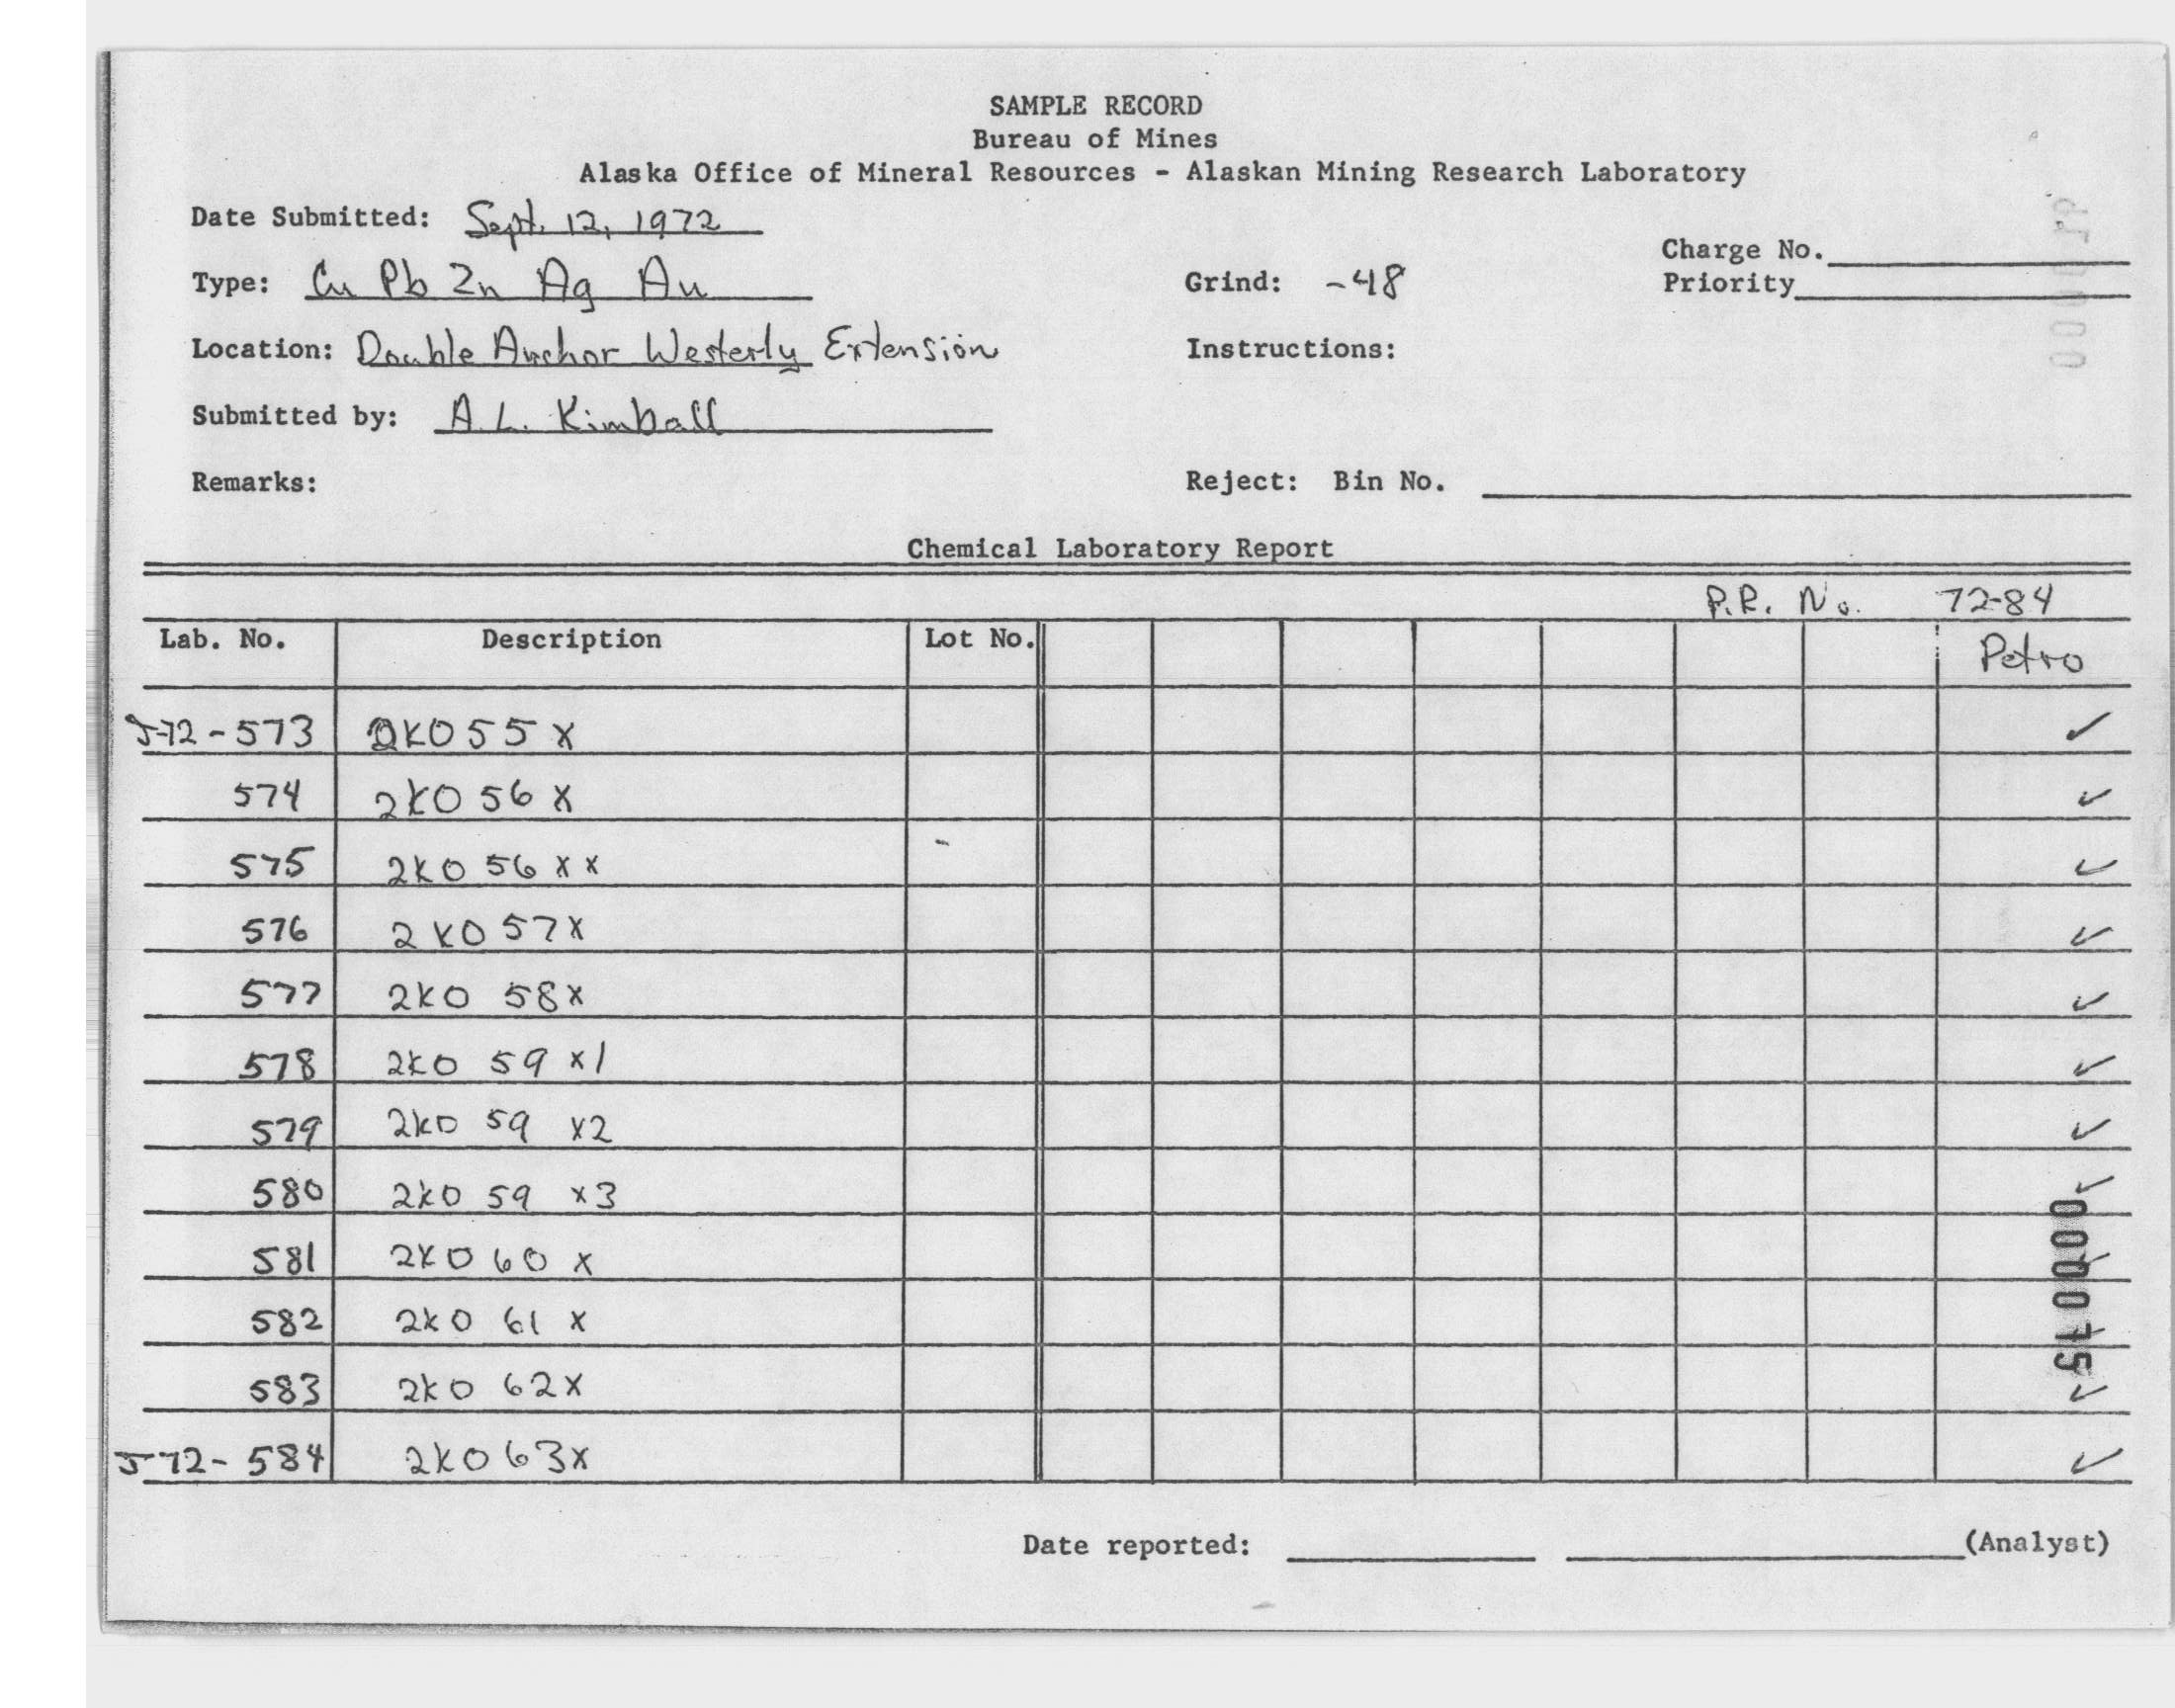 SAMPLE RECORD
Bureau of Mines
Alaska Office of Mineral Resources - Alaskan Mining Research Laboratory
Date Submitted: Sept. 12, 1972
Charge No.
Type: Cu Pb Zn Ag Au Grind: -48 Priority
Location: Double Anchor Westerly Extension Instructions:
Submitted by: A. L. Kimball
Remarks: Reject: Bin No.
Chemical Laboratory Report
P.R. No. 72-84
Lab. No. Description Lot No. Petro
J-72-573 2K055X ✓
574 2K056X ✓
575 2K056XX ✓
576 2K057X ✓
577 2K058X ✓
578 2K059X1 ✓
579 2K059X2 ✓
580 2K059X3 ✓
581 2K060X ✓
582 2K061X ✓
583 2K062X ✓
J-72-584 2K063X ✓
Date reported: (Analyst)